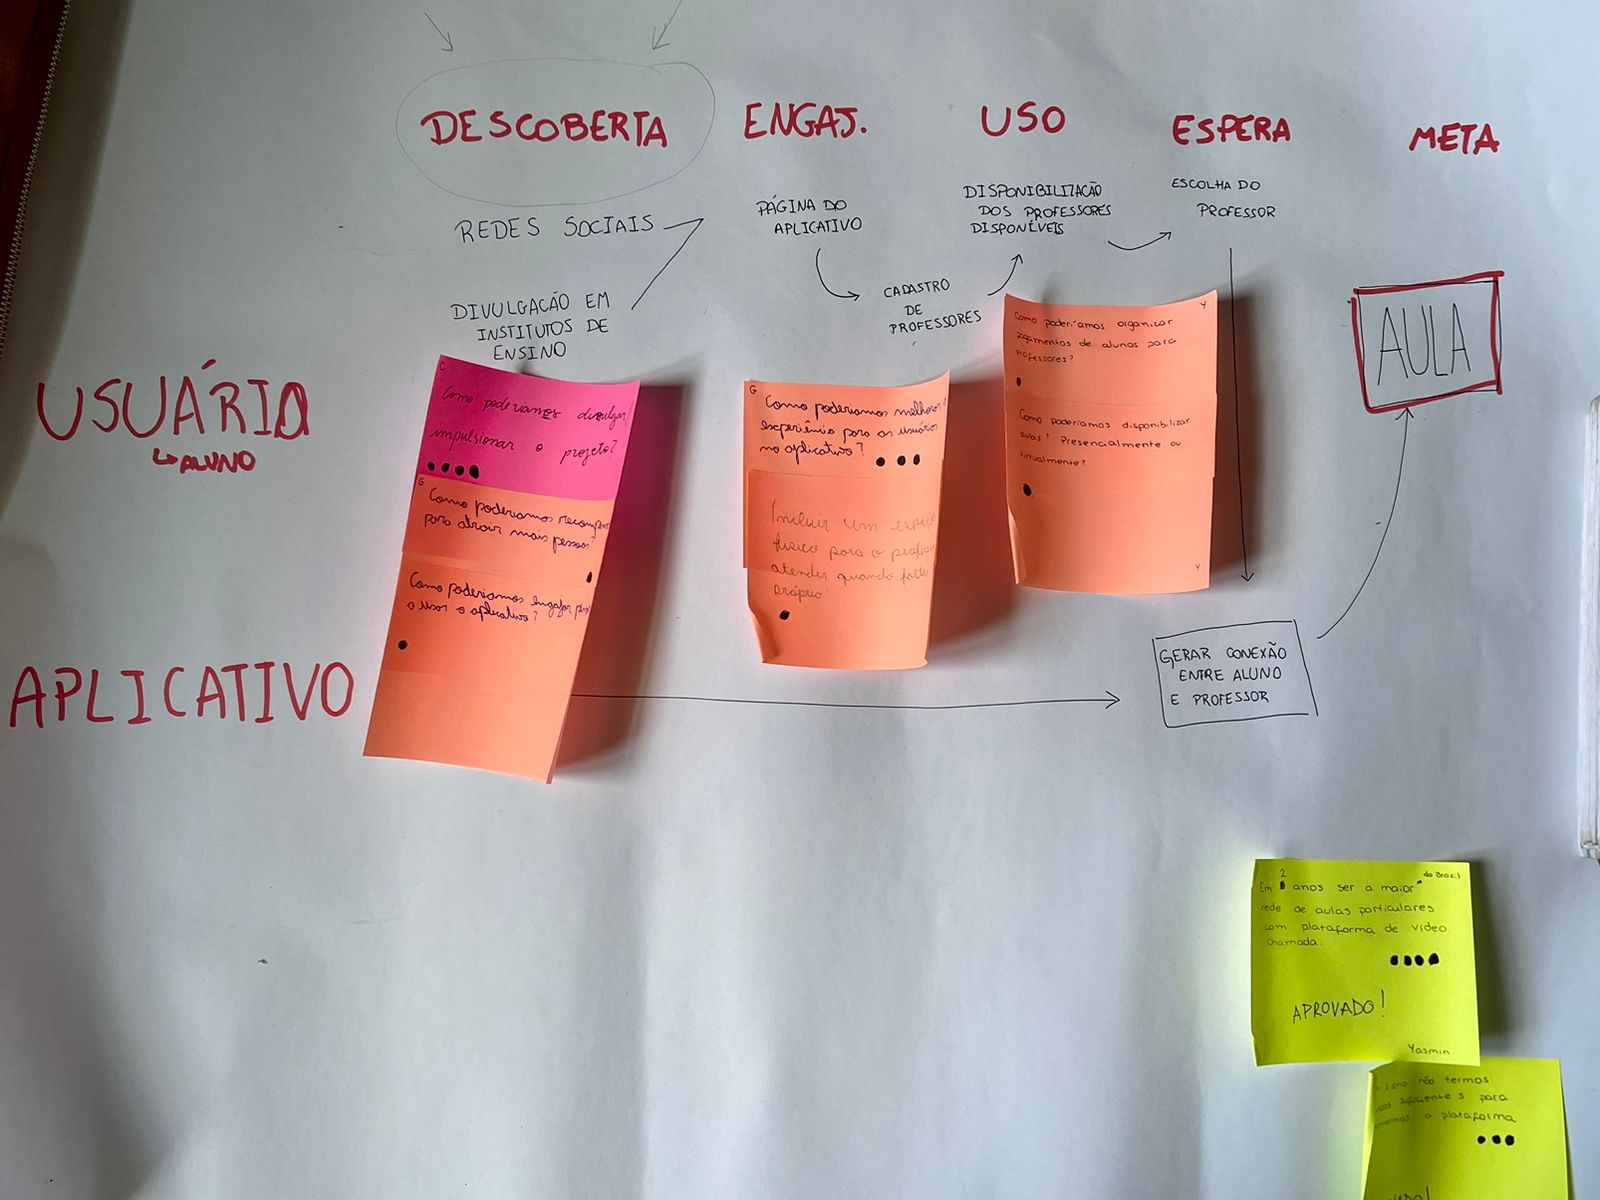 DESCOBERTA
ENGAJ.
USO
ESPERA
META
REDES SOCIAIS
DIVULGAÇÃO EM
INSTITUTOS DE
ENSINO
PÁGINA DO
APLICATIVO
CADASTRO
DE
PROFESSORES
DISPONIBILIZAÇÃO
DOS PROFESSORES
DISPONÍVEIS
ESCOLHA DO
PROFESSOR
AULA
USUÁRIO
ALUNO
C
Como poderiamos divulgar/
impulsionar o projeto?
G
Como poderiamos
para atrair mais pessoas?
Como poderiamos engajar
a usar o aplicativo?
G
Como poderiamos melhorar a
experiência para os usuários
no aplicativo?
Incluir um
físico para o
atender quando
próprio.
Y
Como poderíamos organizar
pagamentos de alunos para
professores?
Como poderíamos disponibilizar
aulas? Presencialmente ou
virtualmente?
Y
APLICATIVO
GERAR CONEXÃO
ENTRE ALUNO
E PROFESSOR
2 do Brasil
Em anos ser a maior
rede de aulas particulares
com plataforma de vídeo
chamada.
APROVADO!
Yasmin
1 ano não termos
suficientes para
a plataforma